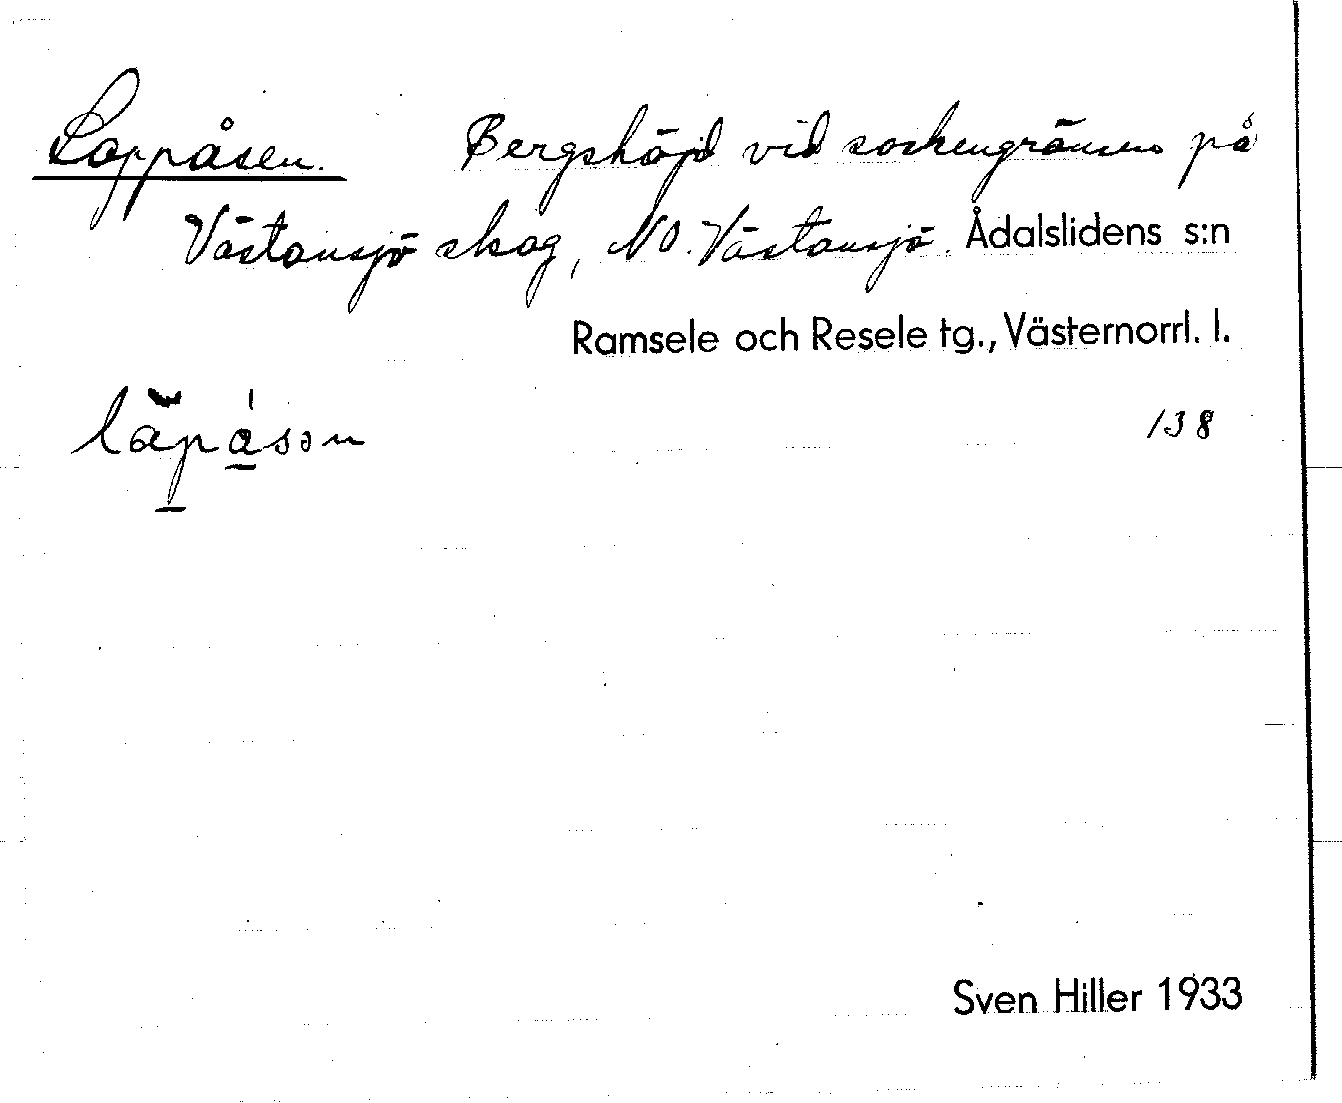 Lappåsen. Bergshöjd vid sockengränsen på
Västansjö skog, NO. Västansjö. Ådalslidens s:n
Ramsele och Resele tg., Västernorrl. l.
138
Sven Hiller 1933